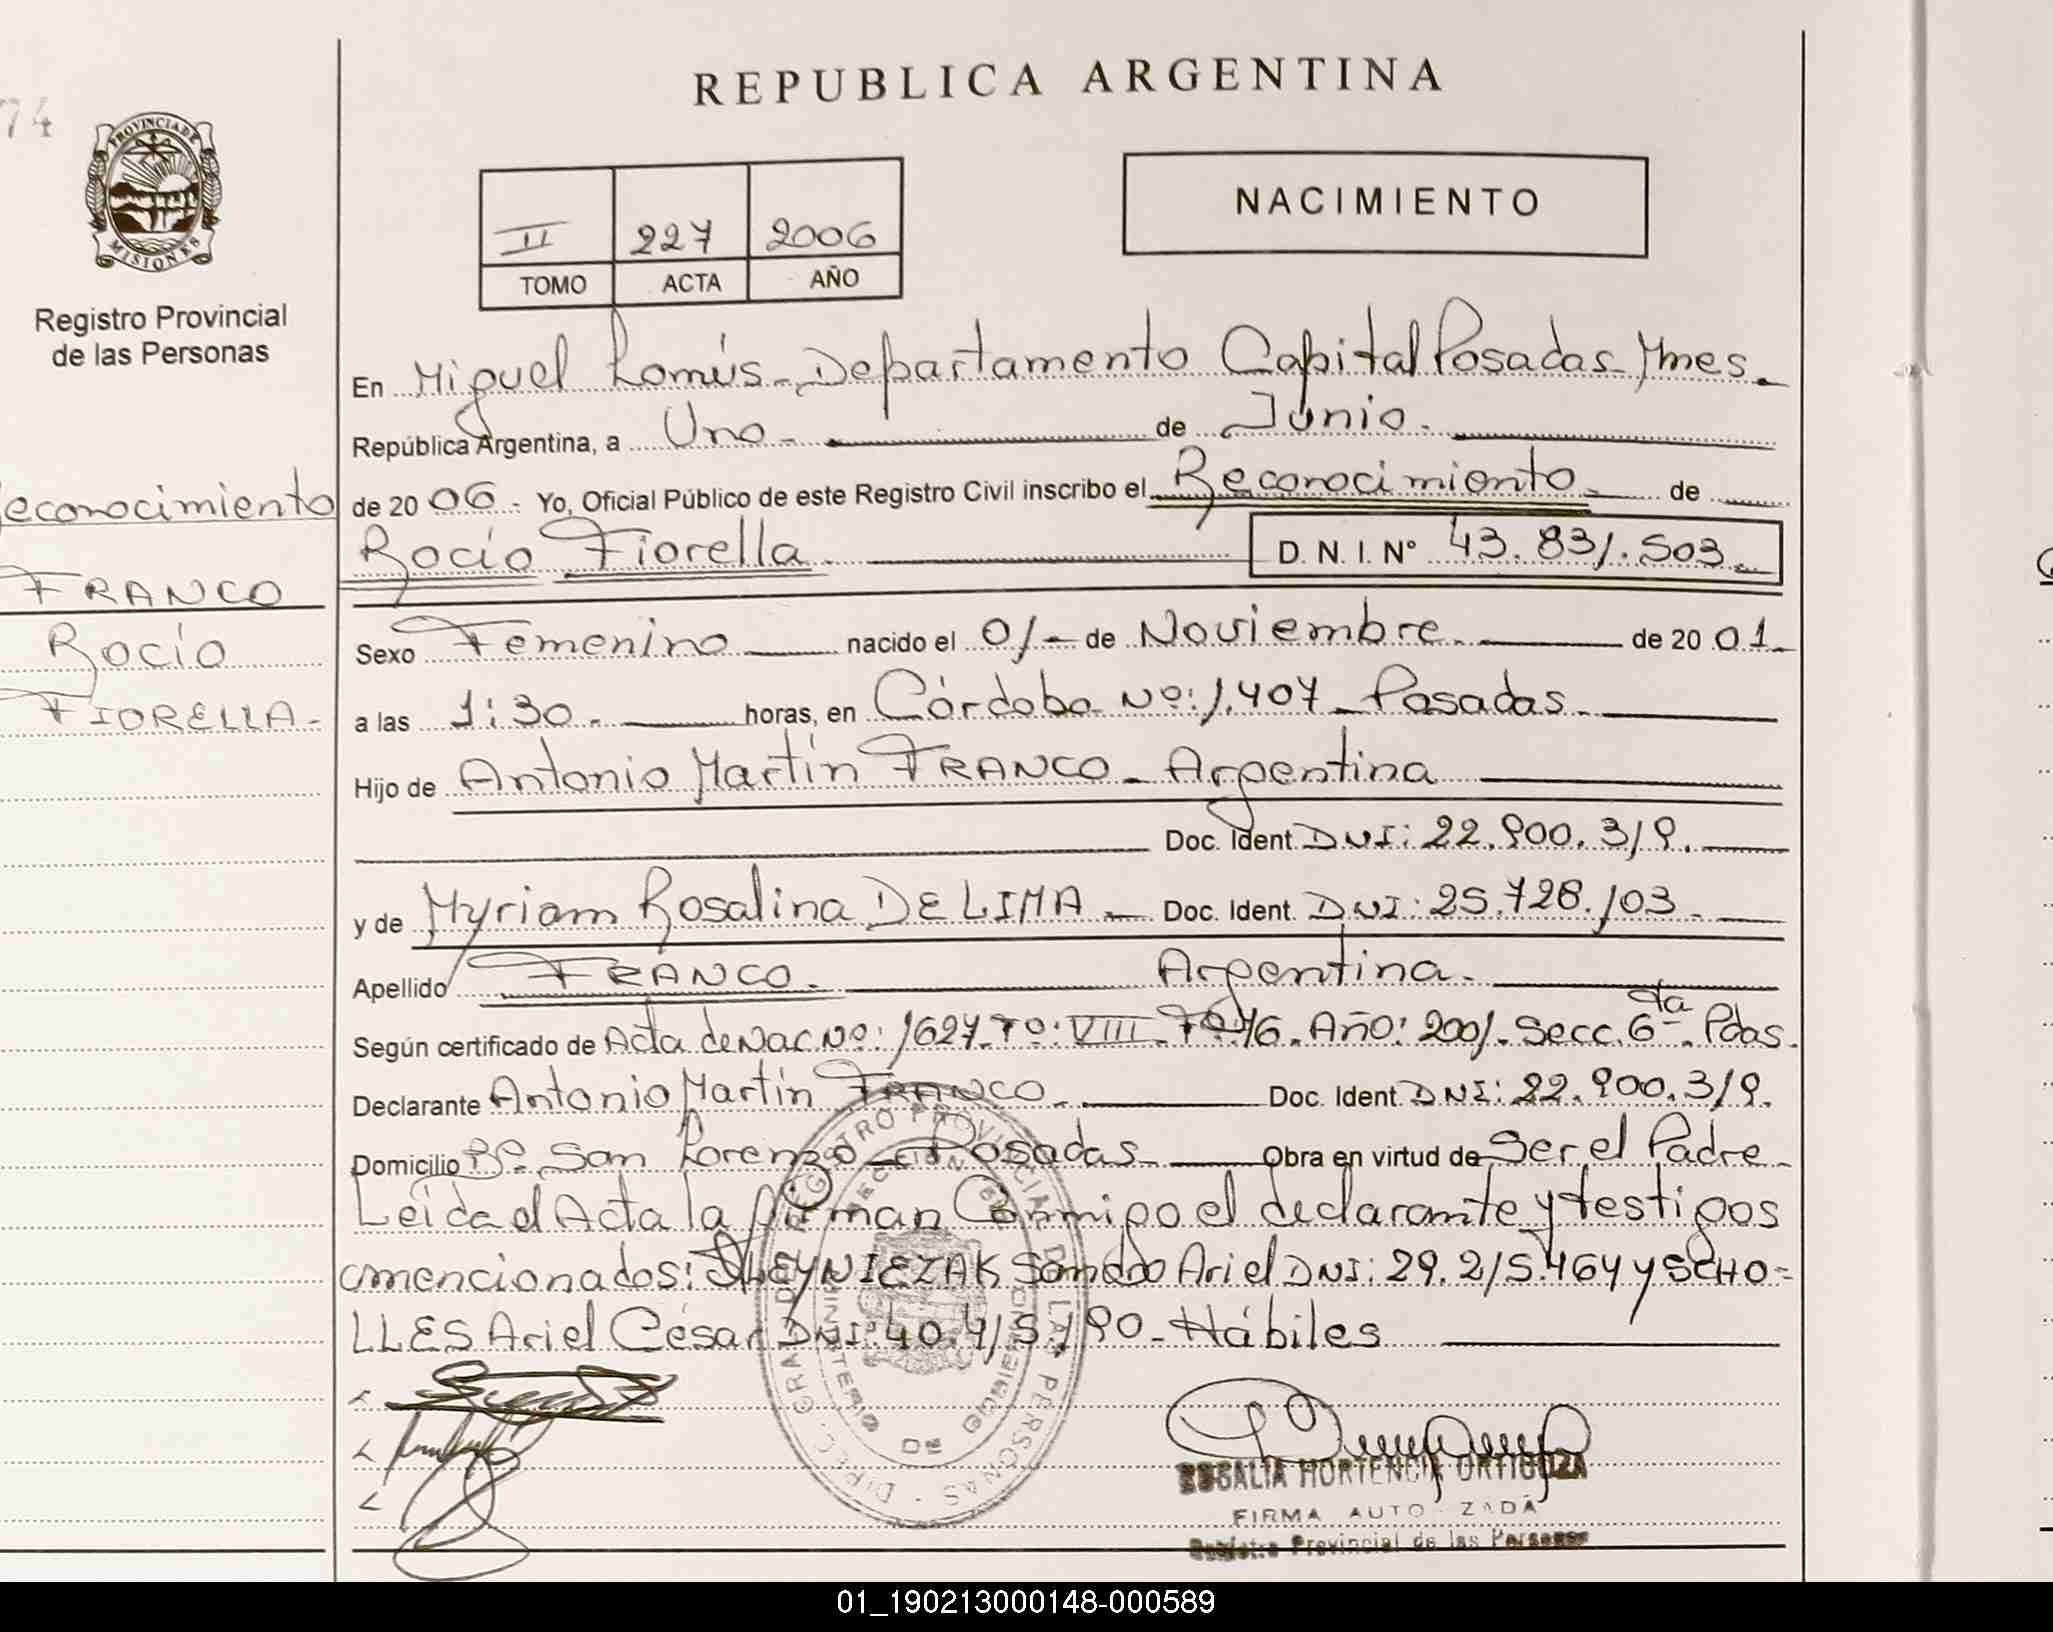 REPUBLICA ARGENTINA
74
PROVINCIA DE
MISIONES
Registro Provincial
de las Personas
II 227 2006
TOMO ACTA AÑO
NACIMIENTO
En Miguel Lanús - Departamento Capital Posadas Mnes.
República Argentina, a Uno - de Junio.
de 20 06 - Yo, Oficial Público de este Registro Civil inscribo el Reconocimiento de
Rocío Fiorella. D. N. I. N° 43.831.503
econocimiento
FRANCO
Rocío
FIORELLA -
Sexo Femenino nacido el 01 - de Noviembre. de 20 01.
a las 1:30. horas, en Córdoba Nº: 1.407 - Posadas.
Hijo de Antonio Martín FRANCO - Argentina
Doc. Ident. DNI: 22.900.319.
y de Myriam Rosalina DE LIMA - Doc. Ident. DNI: 25.728.103.
Apellido FRANCO. Argentina.
Según certificado de Acta de Nac Nº: 1627. Tº: VIII - Fº 76. Año: 2001. Secc. 6ta. Pdas.
Declarante Antonio Martín FRANCO. Doc. Ident. DNI: 22.900.319.
Domicilio Bº San Lorenzo - Posadas. Obra en virtud de Ser el Padre
Leída el Acta la firman Conmigo el declarante y testigos
mencionados: Sandro Ariel DNI: 29.215.464 y SCHO=
LLES Ariel César DNI: 40.415.190 - Hábiles
ROSALIA HORTENCIA ORTIGOZA
FIRMA AUTORIZADA
Registro Provincial de las Personas
DIREC. GRAL. DEL REGISTRO PROVINCIAL DE LAS PERSONAS
MINISTERIO DE GOBIERNO
01_190213000148-000589